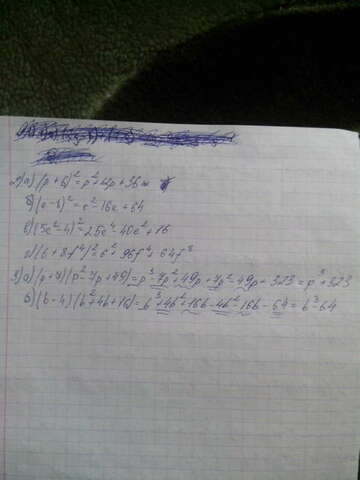 2) а) (p + 6)² = p² + 4p + 36
б) (c - 8)² = c² - 16c + 64
в) (5c² - 4)² = 25c⁴ - 40c² + 16
г) (6 + 8f⁴)² = 6² + 96f⁴ + 64f⁸
3) а) (p + 7)(p² - 7p + 49) = p³ - 7p² + 49p + 7p² - 49p + 323 = p³ + 323
б) (b - 4)(b² + 4b + 16) = b³ + 4b² + 16b - 4b² - 16b - 64 = b³ - 64